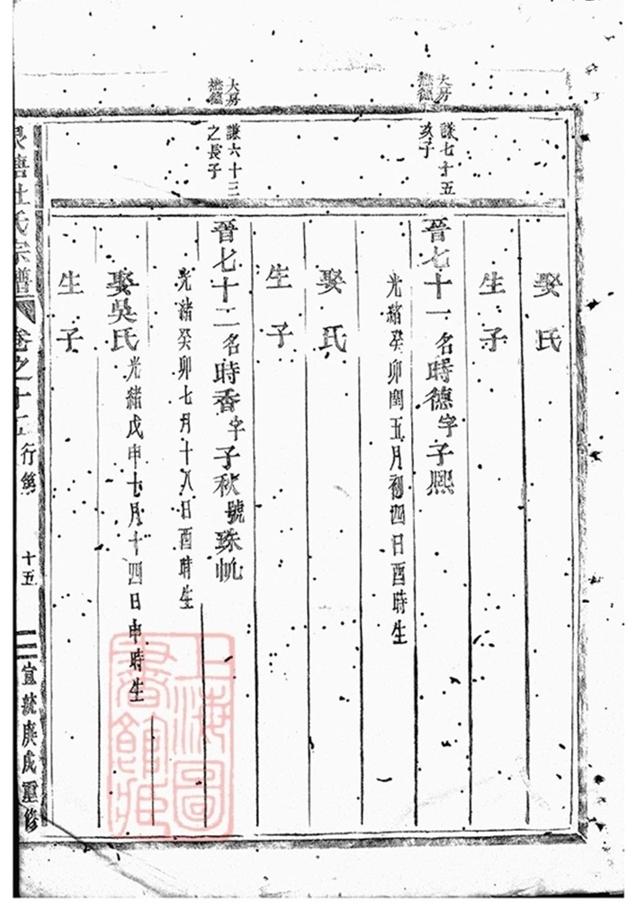 娶氏
生子
大房
謙七十五
次子
晉七十一名時德字子熈
光緒癸卯閏五月初四日酉時生
娶氏
生子
大房
謙六十三
之長子
晉七十二名時香字子秋號珠帆
光緒癸卯七月十八日酉時生
娶吳氏光緒戊申七月十四日申時生
生子
杜氏宗譜 卷之十五 行第 十五 宣統庚戌重修
上海圖書館藏